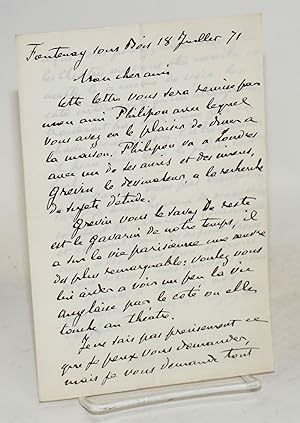 Fontenay sous Bois 18 Juillet 71
Mon cher ami
Cette lettre vous sera remise par
mon ami Philipon avec lequel
vous avez eu le plaisir de diner a
la maison. Philipon va a Londres
avec un de ses amis et des miens,
Grevin le dessinateur, a la recherche
de sujets d'étude.
Grevin vous le savez de reste
est le Gavarni de notre temps, il
a sur la vie parisienne une œuvre
des plus remarquable: voulez vous
lui aider a voir un peu la vie
anglaise par le coté ou elle
touche au théatre.
Je ne sais pas precisement ce
que je peux vous demander,
mais je vous demande tout